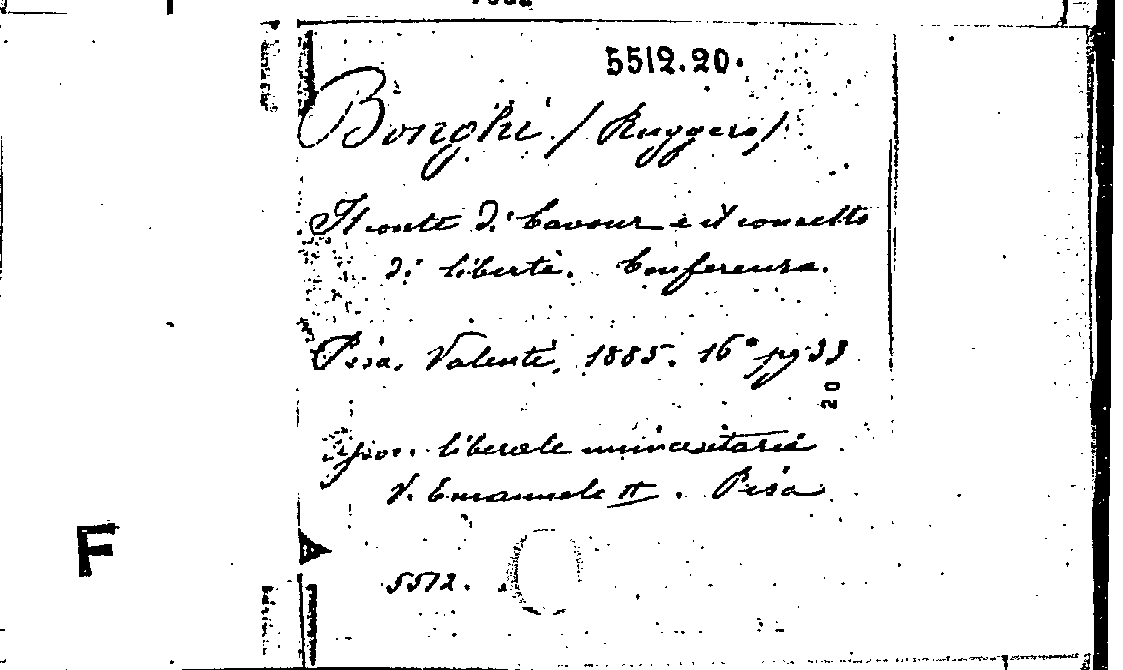 5512.20.
Bonghi (Ruggero)
Il conte di Cavour e il concetto
di libertà. Conferenza.
Pisa, Valenti, 1885. 16° pg 33
20
liberale universitaria
V. Emanuele II. Pisa
5512.
F